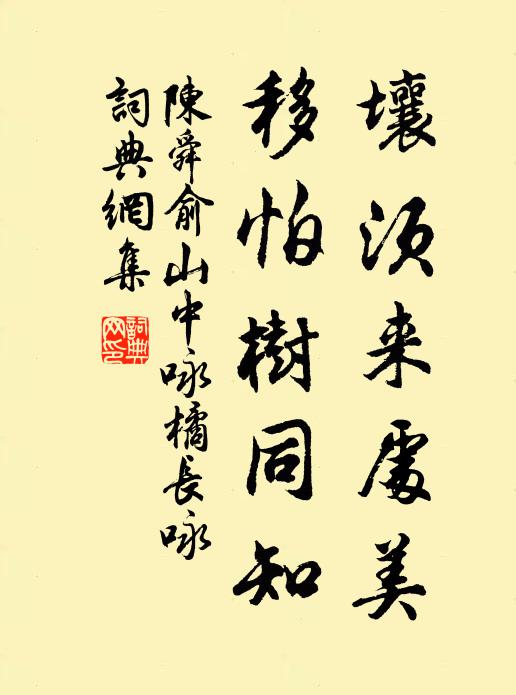 壤須来處美
移怕樹同知
陳舜俞山中咏橘長咏
詞典網集
詞典网印